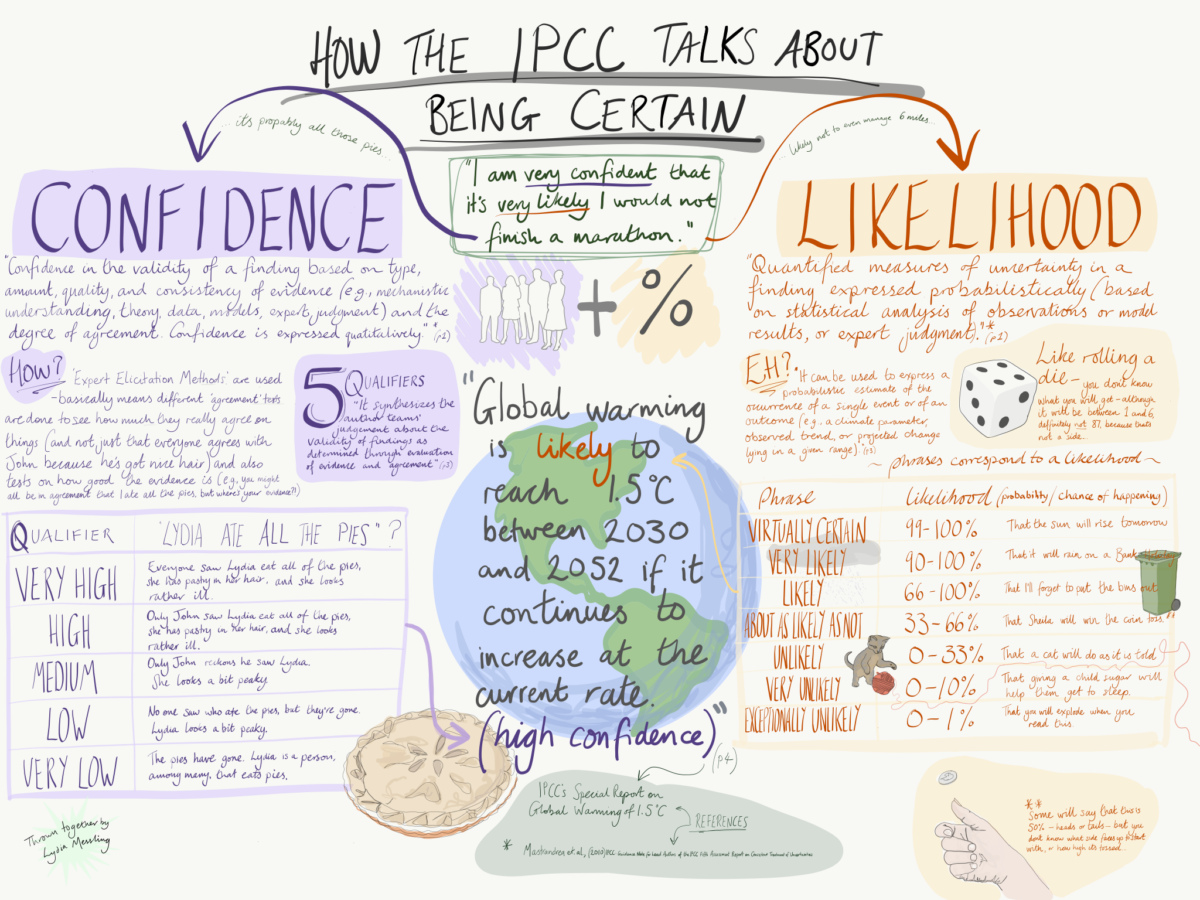 HOW THE IPCC TALKS ABOUT
BEING CERTAIN
... it's propably all those
pies...
... likely not to even manage 6 miles...
"I am very confident that
it's very likely I would not
finish a marathon."
CONFIDENCE
"Confidence in the validity of a finding based on type,
amount, quality, and consistency of evidence (e.g., mechanistic
understanding, theory, data, models, expert judgment) and the
degree of agreement. Confidence is expressed qualitatively." *(p2)
HOW?
'Expert Elicitation Methods' are used
- basically means different 'agreement' tests
are done to see how much they really agree on
things (and not just that everyone agrees with
John because he's got nice hair) and also
tests on how good the evidence is (e.g. you might
all be in agreement that I ate all the pies, but where's your evidence?!)
5 QUALIFIERS
"It synthesizes the
author teams'
judgement about the
validity of findings as
determined through evaluation
of evidence and agreement" *(p3)
QUALIFIER
"LYDIA ATE ALL THE PIES"?
VERY HIGH
Everyone saw Lydia eat all of the pies,
she has pastry in her hair, and she looks
rather ill.
HIGH
Only John saw Lydia eat all of the pies,
she has pastry in her hair, and she looks
rather ill.
MEDIUM
Only John reckons he saw Lydia.
She looks a bit peaky.
LOW
No one saw who ate the pies, but they're gone.
Lydia looks a bit peaky.
VERY LOW
The pies have gone. Lydia is a person,
among many, that eats pies.
Thrown together by
Lydia Messling
+ %
"Global warming
is likely to
reach 1.5°C
between 2030
and 2052 if it
continues to
increase at the
current rate.
(high confidence)"
(p4)
IPCC's Special Report on
Global Warming of 1.5°C
REFERENCES
* Mastrandrea et al., (2010) IPCC Guidance Note for Lead Authors of the IPCC Fifth Assessment Report on Consistent Treatment of Uncertainties
LIKELIHOOD
"Quantified measures of uncertainty in a
finding expressed probabilistically (based
on statistical analysis of observations or model
results, or expert judgment)."* (p2)
EH?
"It can be used to express a
probabilistic estimate of the
occurrence of a single event or of an
outcome (e.g., a climate parameter,
observed trend, or projected change
lying in a given range)." *(p3)
Like rolling a
die - you don't know
what you will get - although
it will be between 1 and 6,
definitely not 87, because thats
not a side.
~ phrases correspond to a likelihood ~
Phrase
Likelihood (probability/chance of happening)
VIRTUALLY CERTAIN
99-100%
That the sun will rise tomorrow
VERY LIKELY
90-100%
That it will rain on a Bank
LIKELY
66-100%
That I'll forget to put the bins out
ABOUT AS LIKELY AS NOT
33-66%
That Sheila will win the coin toss.**
UNLIKELY
0-33%
That a cat will do as it is told
VERY UNLIKELY
0-10%
That giving a child sugar will
help them get to sleep.
EXCEPTIONALLY UNLIKELY
0-1%
That you will explode when you
read this.
**
Some will say that this is
50% - heads or tails - but you
don't know what side faces up to start
with, or how high its tossed...